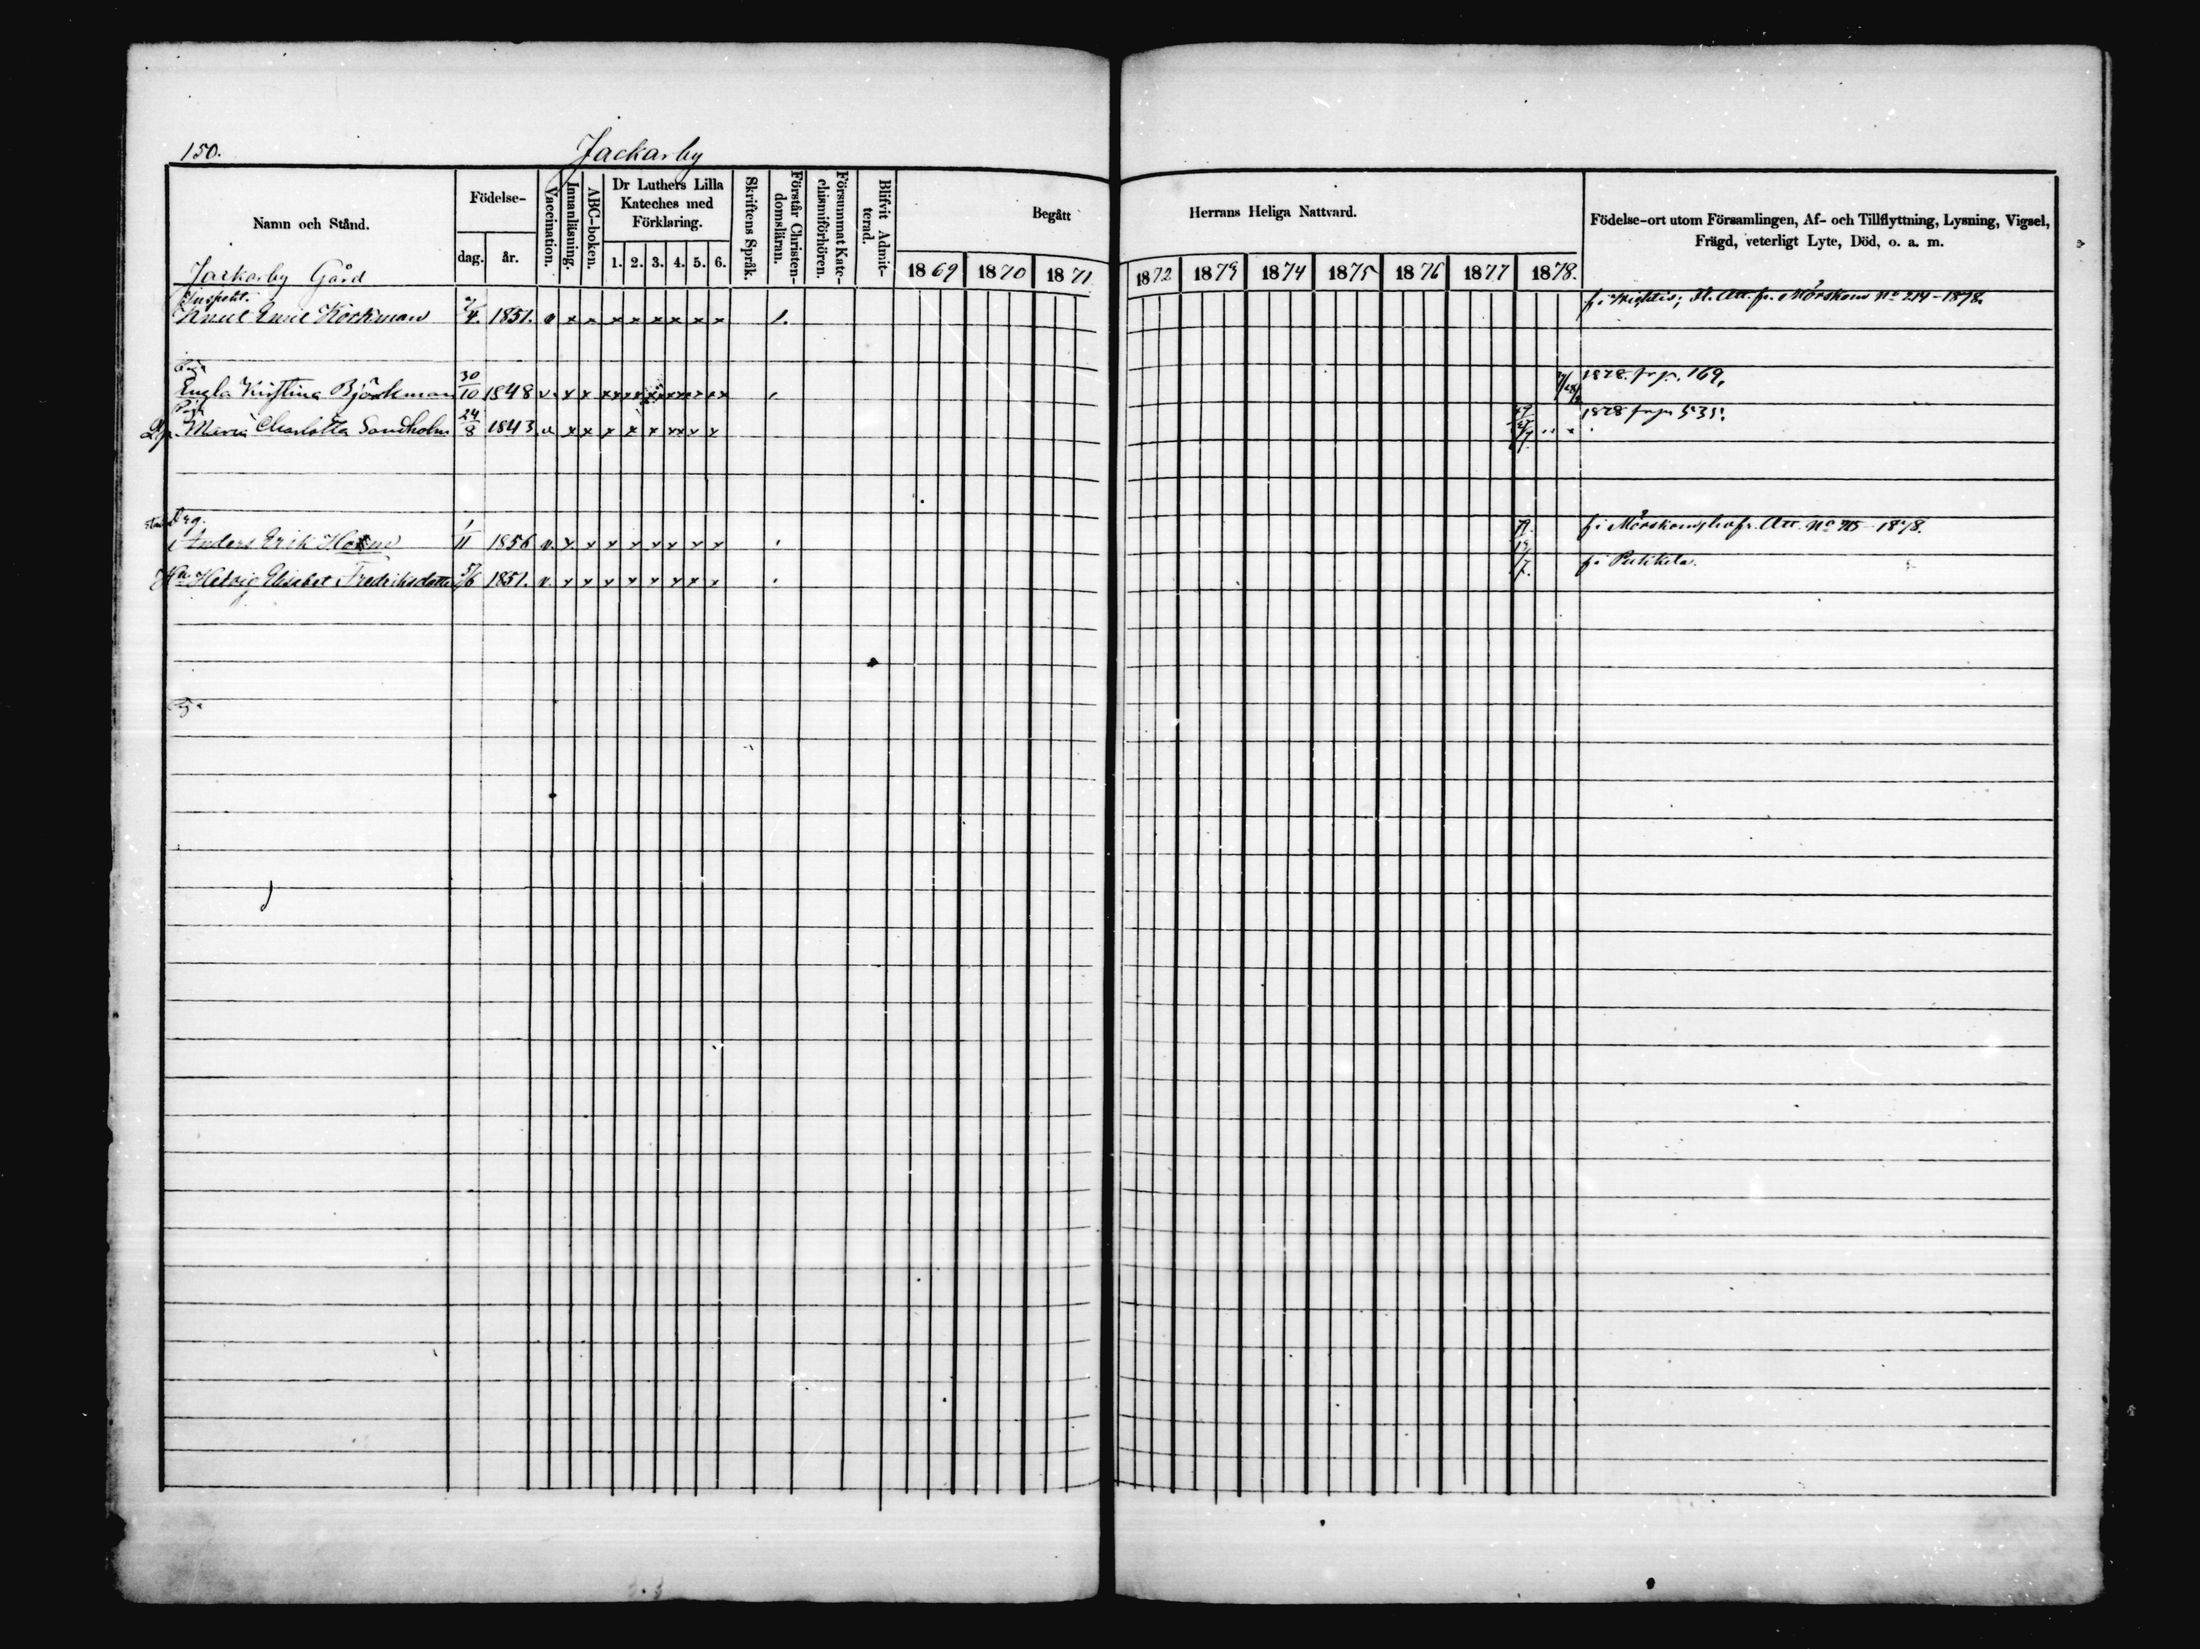 150.
Jackarby
Namn och Stånd.
Födelse-
dag.
år.
Vaccination.
Innanläsning.
ABC-boken.
Dr Luthers Lilla
Kateches med
Förklaring.
1. 2. 3. 4. 5. 6.
Skriftens Språk.
Förstår Christen-
domsläran.
Försummat Kate-
chismiförhören.
Blifvit Admit-
terad.
Begått Herrans Heliga Nattvard.
1869 1870 1871 1872 1873 1874 1875 1876 1877 1878.
Födelse-ort utom Församlingen, Af- och Tillflyttning, Lysning, Vigsel,
Frägd, veterligt Lyte, Död, o. a. m.
Jackarby Gård
Inspekt.
Knut Emil Köckman 1851. v x x x x x x x x 1. Att. fr. Mörskom No 214-1878.
Piga
Engla Kristina Björkman 30/10 1848 v. x x 1878 fr. p. 169.
Piga
Maria Charlotta Sandholm 24/8 1843 v x x x x x x x x 1878 fr. p. 531.
Anders Erik Holm 1/11 1856 v. x x x x x x x x f. i Mörskom, Att. No 1878.
Hu Hedvig Elisabet Fredriksdotter 1851. v. x x x x x x x x f. i Pukkila.
Piga